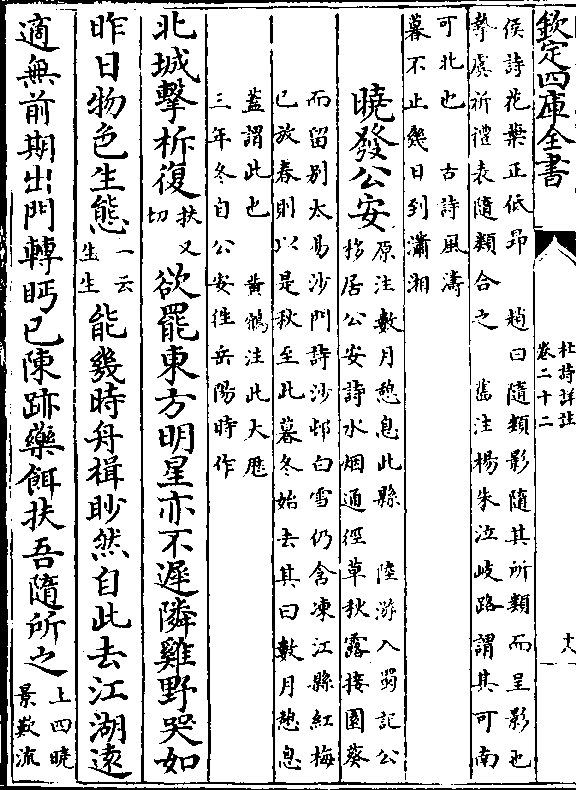 欽定四庫全書
杜詩詳註
卷二十二
侯詩花葉正低昂　趙曰隨類影隨其所類而呈影也
摯虞祈禮表隨類合之　舊注楊朱泣岐路謂其可南
可北也　古詩風濤
暮不止幾日到瀟湘
曉發公安
原注數月憩息此縣　陸游入蜀記公
移居公安詩水烟通徑草秋露接園葵
而留別太易沙門詩沙邨白雪仍含凍江縣紅梅
已放春則以是秋至此暮冬始去其曰數月憩息
蓋謂此也　黃鶴注此大厯
三年冬自公安徃岳陽時作
北城擊柝復扶又切欲罷東方明星亦不遲隣雞野哭如
昨日物色生態一云生生能幾時舟楫眇然自此去江湖遠
適無前期出門轉眄已陳跡藥餌扶吾隨所之上四曉景歎流